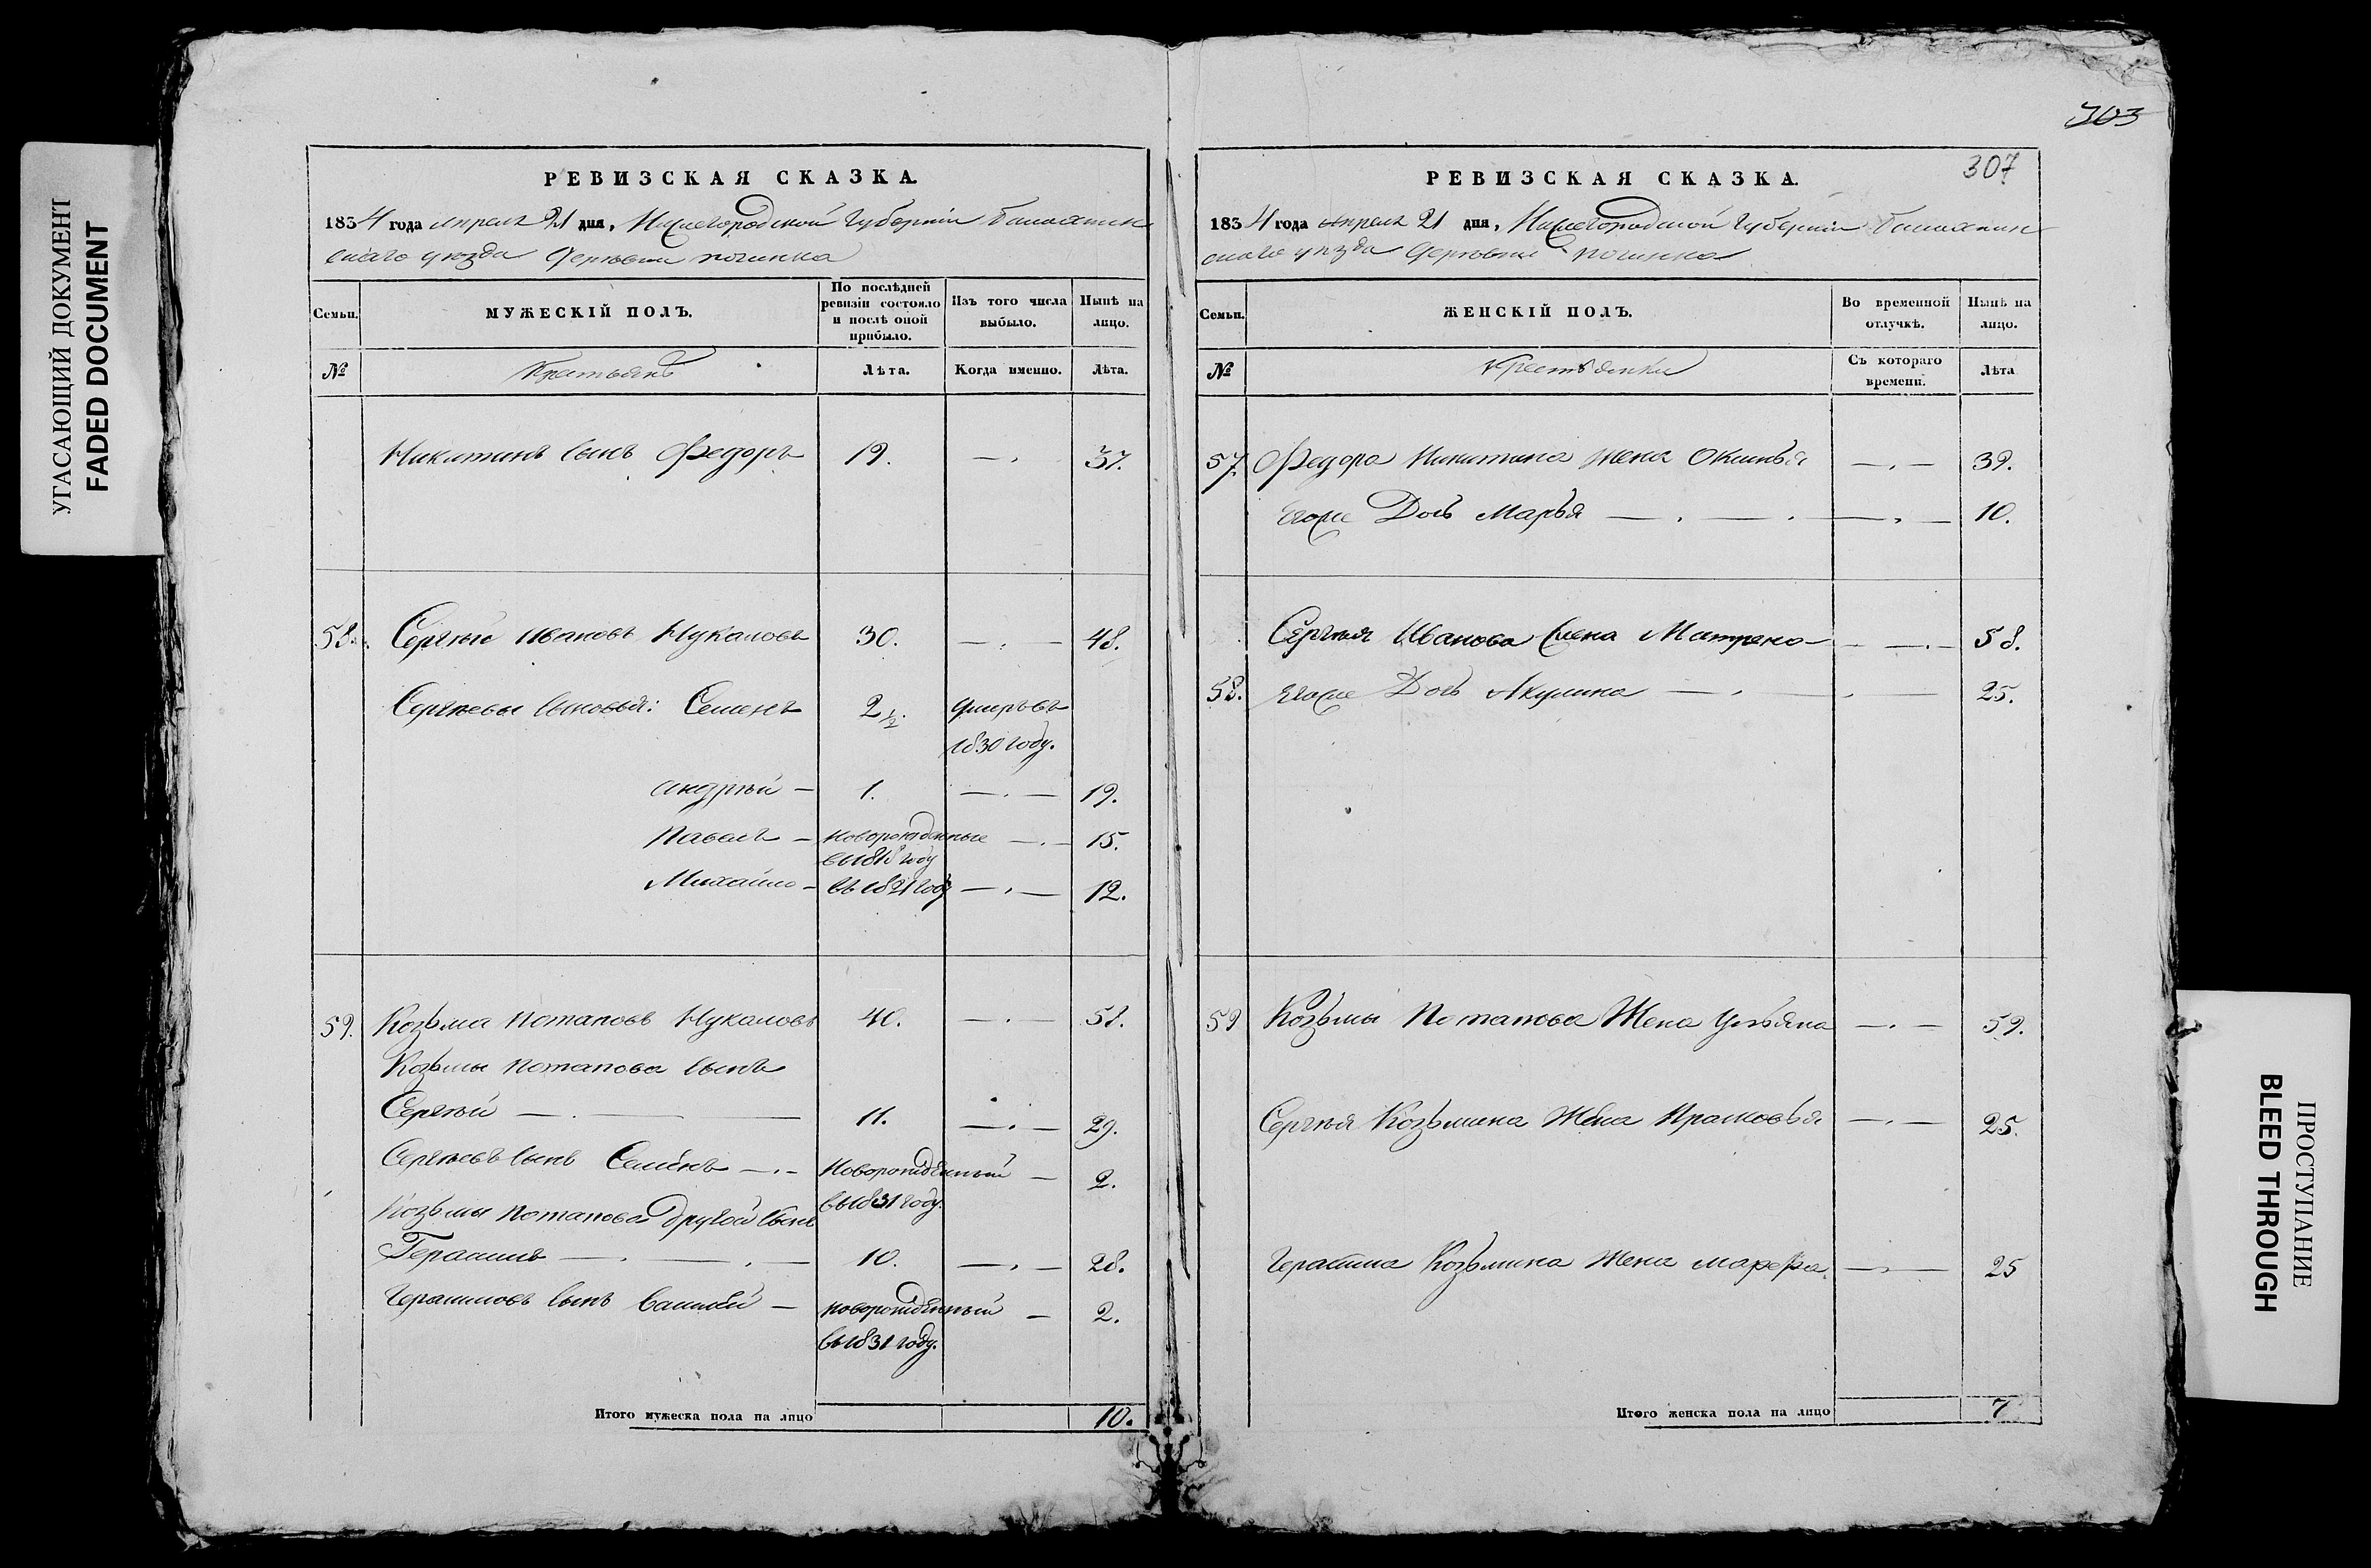 УГАСАЮЩИЙ ДОКУМЕНТ
FADED DOCUMENT
РЕВИЗСКАЯ СКАЗКА.
1834 года апреля 21 дня, Нижегородской губернии Балахнин
скаго уѣзда деревни починка
Семьи.
МУЖЕСКІЙ ПОЛЪ.
По послѣдней
ревизіи состояло
и послѣ оной
прибыло.
Изъ того числа
выбыло.
Нынѣ на
лицо.
№
Крестьянъ
Лѣта.
Когда именно.
Лѣта.
Никитинъ сынъ Федоръ 19. — . 37.
58. Сергѣй Ивановъ Чукаловъ 30. — . — 48.
Сергѣевы сыновья: Семенъ 2 1/2. умеръ въ
1830 году.
Андрѣй — 1. — . — 19.
Павелъ — новорожденные — . — 15.
въ 1818 году
Михайло — въ 1821 году — . — 12.
59. Козьма Потаповъ Чукаловъ 40. — . — 58.
Козьмы Потапова сынъ
Сергѣй — . — 11. — . — 29.
Сергѣевъ сынъ Семенъ — . — новорожденный — 2.
въ 1831 году.
Козьмы Потапова другой сынъ
Герасимъ — . — . — 10. — . — 28.
Герасимовъ сынъ Василей — новорожденный — 2.
въ 1831 году.
Итого мужеска пола на лицо 10.
303
307
РЕВИЗСКАЯ СКАЗКА.
1834 года апреля 21 дня, Нижегородской губернии Балахнин
скаго уѣзда деревни починка
Семьи.
ЖЕНСКІЙ ПОЛЪ.
Во временной
отлучкѣ.
Нынѣ на
лицо.
№
Крестьянки
Съ котораго
времени.
Лѣта
57. Федора Никитина жена Окинья — . — 39.
Егоже Дочь Марья — . — . — . — 10.
Сергѣя Иванова жена Матрена — — . — 58.
58. Егоже Дочь Акулина — . — . — 25.
59 Козьмы Потапова Жена Ульяна — . — 59.
Сергѣя Козьмина Жена Прасковья — . — 25.
Герасима Козьмина Жена Марфа. — . — 25
Итого женска пола на лицо 7
ПРОСТУПАНИЕ
BLEED THROUGH